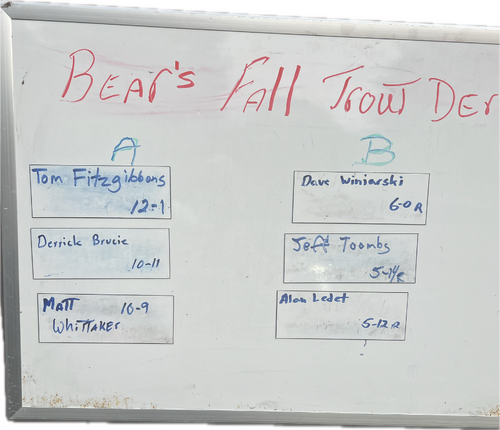 BEAr's FAll TrouT DEr
A
B
Tom Fitzgibbons
12-1
Derrick Brucie
10-11
MATT 10-9
WHITTAKER
Dave Winiarski
6-0 R
Jeff Toombs
5-14 R
Alan Ledet
5-12 R